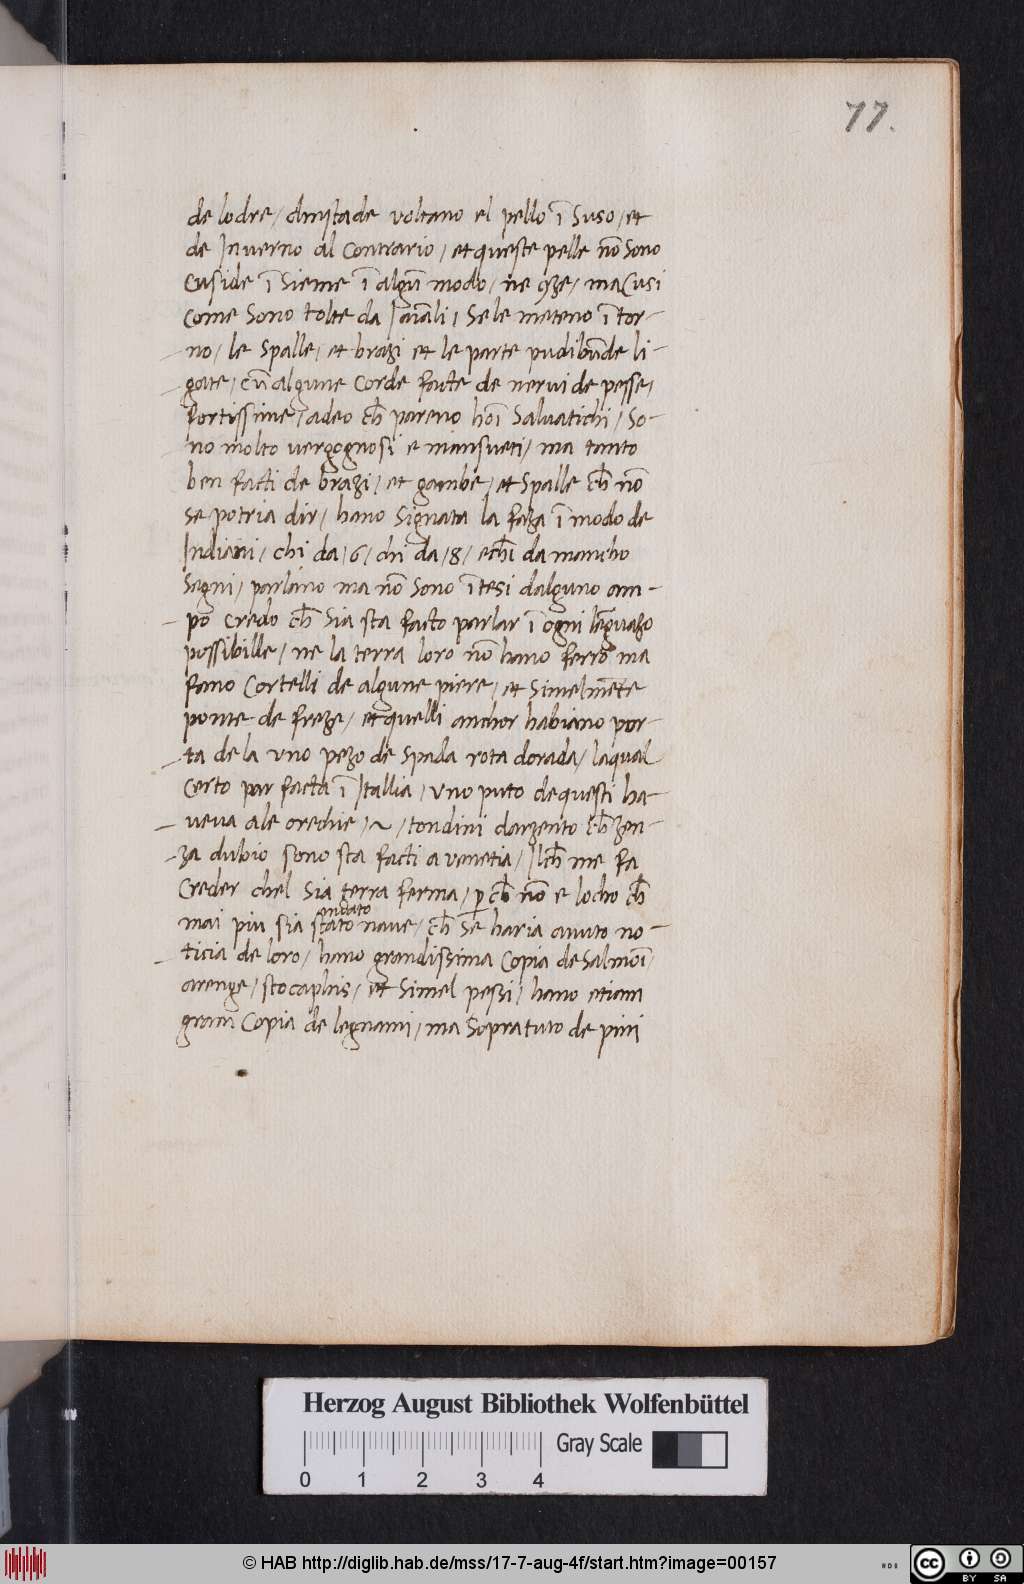 77.
de lodre / dinstade voltano el pello ĩ suso / et
de Inverno al contrario / et queste pelle nõ sono
cuside ĩ sieme ĩ algũ modo / ne ꝯze / ma cusi
come sono tolte da laiãli / se le meteno ĩ tor-
no / le spalle / et brazi et le parte pudibũde li-
gate / cũ algune corde facte de nervi de pesse /
fortissime / adeo ch̃ pareno hoĩ salvatichi / so-
no molto vergognosi e mansueti / ma tanto
ben facti de brazi / et gambe / et spalle ch̃ nõ
se potria dir / hano signata la faza ĩ modo de
Indiani / chi da / 6 / chi da / 8 / e chĩ da mancho
segni / parlano ma nõ sono ĩtesi dalguno am-
po credo ch̃ sia sta facto parlar ĩ ogni lẽguazo
possibille / ne la terra loro nõ hano ferro ma
fano cortelli de algune piere / et simelmẽte
ponte de freze / et quelli anchor habiano por-
ta de la uno pezo de spada rota dorada / laqual
certo par facta ĩ Itallia / uno puto de questi ha-
veva ale orechie / ~ / tondini darzento ch̃ zen-
za dubio sono sta facti a venetia / Ilch̃ me fa
creder chel sia terra ferma / ꝑ ch̃ nõ e locho ch̃
andato
mai piu sia stato nave / ch̃ se haria avuto no-
ticia de loro / hano grandissima copia de salmoĩ /
arenge / stocaphis / et simel pessi / hano etiam
gram copia de legnami / ma sopratuto de pini
Herzog August Bibliothek Wolfenbüttel
Gray Scale
0 1 2 3 4
© HAB http://diglib.hab.de/mss/17-7-aug-4f/start.htm?image=00157
cc BY SA